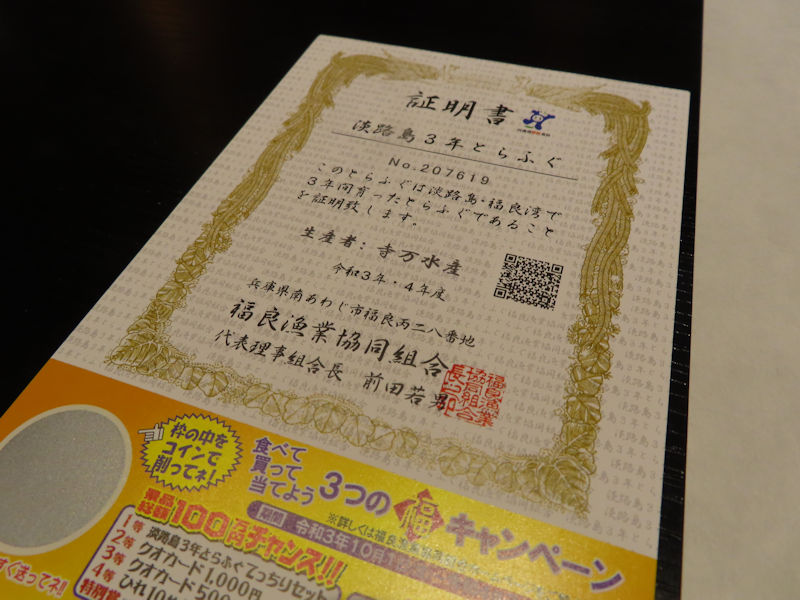 証明書
淡路島3年とらふぐ
No.207619
このとらふぐは淡路島・福良湾で
3年間育ったとらふぐであること
を証明致します。
生産者：寺万水産
令和3年・4年度
兵庫県南あわじ市福良丙二八番地
福良漁業協同組合
代表理事組合長 前田若男
枠の中を
コインで
削ってネ!
食べて
買って
当てよう
3つの福キャンペーン
※詳しくは福良漁業協同組合
期間 令和3年10月1
景品総額100万円チャンス!!
1等 淡路島3年とらふぐてっちりセット
2等 クオカード1,000円
3等 クオカード500
4等 ひれ10
特別賞
すぐ送ってネ!